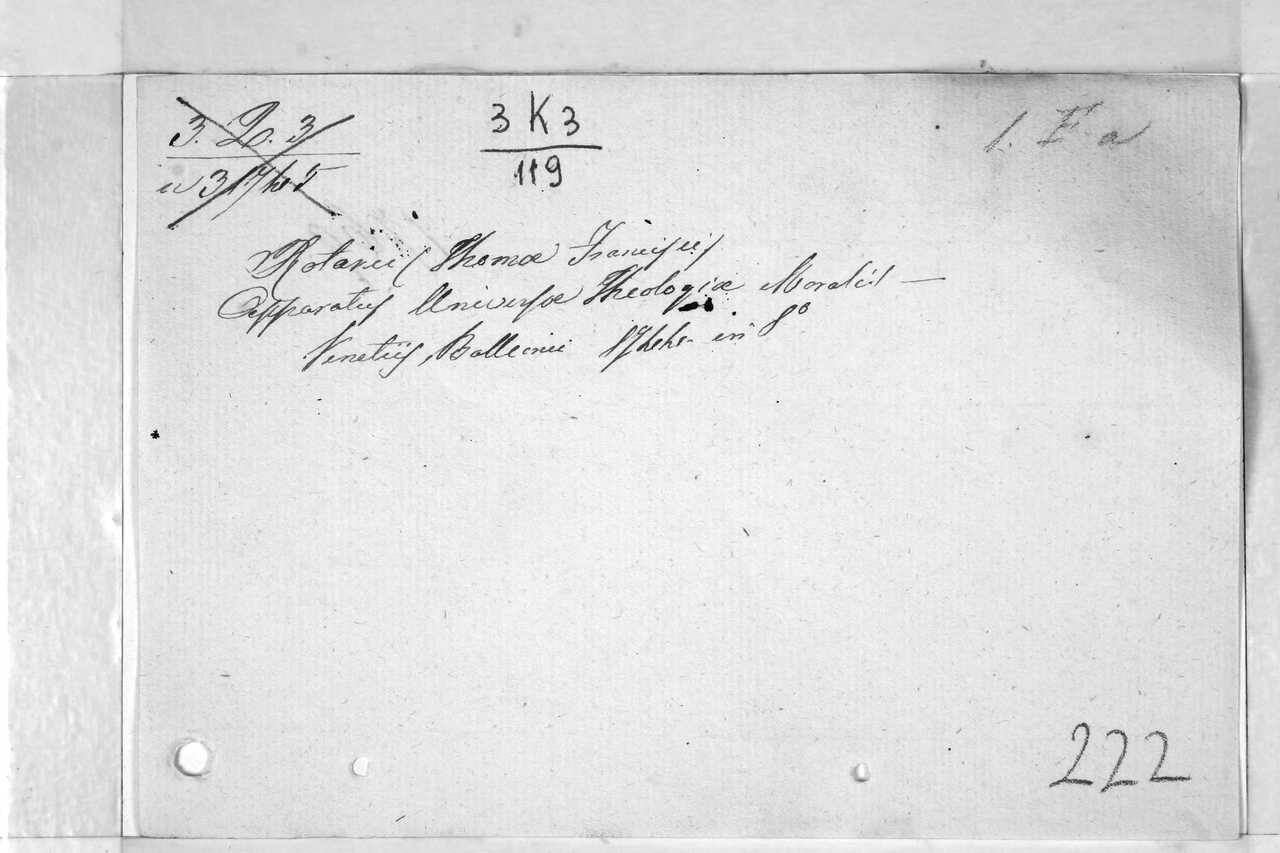 3. L. 3
3 K 3
119
1. F. a
Rotarii (Thomæ Francisci)
Apparatus Universæ Theologiæ Moralis —
Venetiis, Balleonii in 8º
222